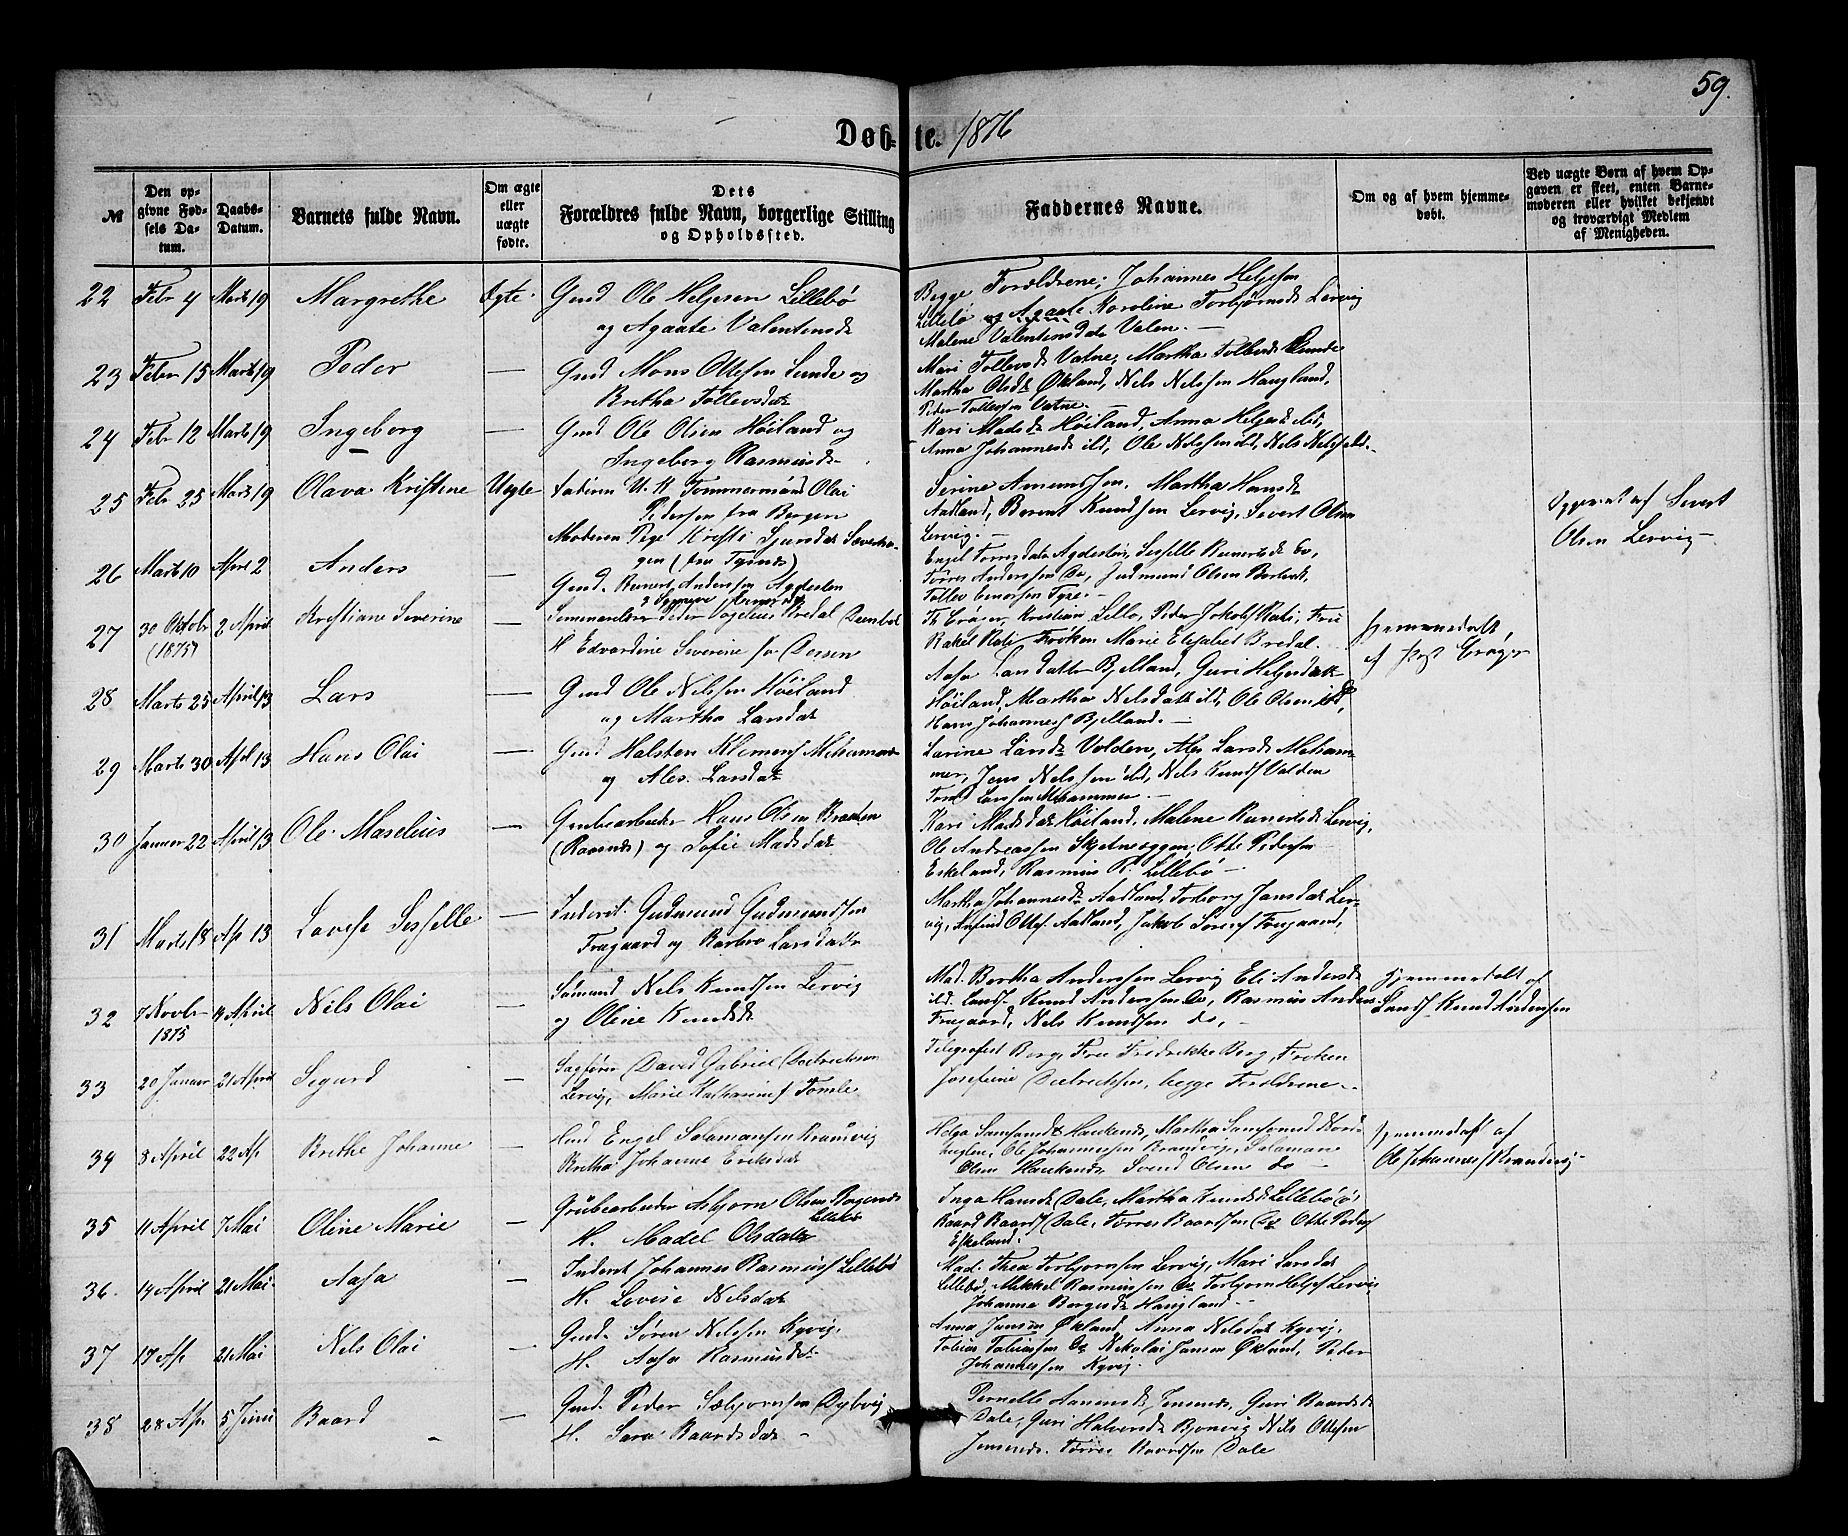 59.
Døbte. 1876
№
Den opgivne Fødsels Datum.
Daabs-Datum.
Barnets fulde Navn.
Om ægte eller uægte fødte.
Dets Forældres fulde Navn, borgerlige Stilling og Opholdssted.
Faddernes Navne.
Om og af hvem hjemmedøbt.
Ved uægte Børn af hvem Opgaven er skeet, enten Barnemoderen eller hvilket bekjendt og troværdigt Medlem af Menigheden.
22 Febr 4 Marts 19 Margrethe Ægte. Gmd Ole Helgesen Lillebø
og Agaate Valentinsdtr
Begge Forældrene; Johannes Helgesen
Lillebø og Agaate Karoline Torbjørnsdr Lervig
Malene Valentinsdatr Valen. —
23 Febr 15 Marts 19 Peder — Gmd Mons Ottesen Lunde og
Bretha Tollevsdatr
Mari Tollevsdr Vatne, Martha Lunde
Martha Olsdr Økland, Nils Nilssen Haugland,
Peder Tollefsen Vatne. —
24 Febr 12 Marts 19 Ingeborg — Gmd Ole Olsen Høiland og
Ingeborg Rasmusdr
Kari Madsdr Høiland, Anna ibd,
Anna Johannesdr ibd, Ole Nilssen ibd, Nils Nilssen ibd. —
25 Febr 25 Marts 19 Olava Kristine Uegte Faderen U. K. Tømmermand Olai
Pedersen fra Bergen
Moderen Pige Kristi Sjursdatr
(fra Tysnes)
Serine Amundsen, Martha Hansdr
Aadland, Berent Knudsen Lervig, Sivert Olsen
Lervig. —
Opgivet af Sivert
Olsen Lervig —
26 Marts 10 April 2 Anders — Gmd. Anderssen Agdesten
Engel Torresdatr Agdesten, Do,
Torres Anderssen Do, Gudmund Olsen
Tollev
27 30 Oktobr (1875) 2 April Kristiane Severine — Peder Bredal
H. Edvardine Severine f. Dessen
Krøger, Kristian Lillo, Peder Jakobs, Fru
Rakel Frøken Marie Elisabet Bredal.
hjemmedøbt,
af Prst Krøger
28 Marts 25 April 13 Lars — Gmd Ole Nilssen Høiland
og Martha Larsdatr
Aasa Larsdatter Bjelland, Guri Helgesdatr
Høiland, Martha Nilsdatr ibd, Ole Olsen ibd,
Hans Johannesf Bjelland. —
29 Marts 30 April 13 Hans Olai — Gmd Halsten Klemens Mehammer
og Ales. Larsdatr
Larine Larsdr Volden, Ales Larsdr Mehammer,
Jens Nilssen ibd, Nils Knuds Valden
Larssen Mehammer. —
30 Januar 22 April 13 Ole Maselius — Grubearbeider Hans Olsen
og Sofie Madsdatr
Kari Madsdatr Høiland, Malene Lervig,
Ole Andreassen Otte Pedersen
Eskeland, Rasmus R. Lillebø —
31 Marts 18 Ap 13 Lovise Sisselle — Inderst. Gudmund Gudmundsen
Frugaard og Barbro Larsdatr
Martha Johannesdr Aadland, Torborg Jansdatr Lervig,
Aadland, Jakob Frugaard,
32 7 Novbr 1875 April Nils Olai — Sømand Nils Knudsen Lervig
og Oline Knudsdr
Mad. Bertha Anderssen Lervig, Eli Andersdr
ibd. Knud Anderssen Do, Rasmus
Frugaard, Nils Knudsen do, —
Hjemmedøbt af
Knud Anderssen
33 20 Januar 21 April Sigurd — Sagfører David Gabriel Diedrichsen
Lervig, Marie Katharine f Tomle
Telegrafist Berg, Fru Fredrikke Berg, Frøken
Josefine Diedrichsen, begge Forældrene. —
34 8 April 22 Ap Brethe Johanne — Gmd Engel Salamonsen Brandvig
Bretha Johanne Eriksdatr
Helga Samsonsd Haukenæs, Martha Samsonsd
Ole Johannessen Brandvig, Salamon
Olsen Haukenæs, Svend Olsen do —
hjemmedøbt af
Ole Johannessen Brandvig
35 11 April 7 Mai Oline Marie — Grubearbeider Asbjørn Olsen
Lillebø
H. Madel Olsdatr
Inga Hansdr Dale, Martha Knudsdr Lillebø
Baard Baards Dale, Torres Baardsen Do Otte Peders
Eskeland.
36. 14 April 21 Mai. Aasa — Inderst Johannes Rasmus Lillebø
H. Lovise Nilsdatr
Mad. Thea Torbjørnsen Lervig, Mari Larsdr
Lillebø, Mikkel Rasmussen Do Torbjørn Helges Lervig
Johanna Børgesdr Haugland —
37 17 Ap 21 Mai Nils Olai — Gmd. Søren Nilssen Kyvig,
H. Aasa Rasmusdr
Anna Jansen Økland, Anna Nilsdatr Kyvig,
Tobias Tobiassen Do Nikolai Jansen Økland, Peder
Johannessen Kyvig
38 28 Ap. 5 Juni Baard — Gmd. Peder Sæbjørnsen Dybvig
H. Sara Baardsdatr —
Pernelle Jensanes, Guri Baardsdr
Dale, Guri Halvorsdr Nils Ottesen
Jensanes. Torres Baardsen Dale